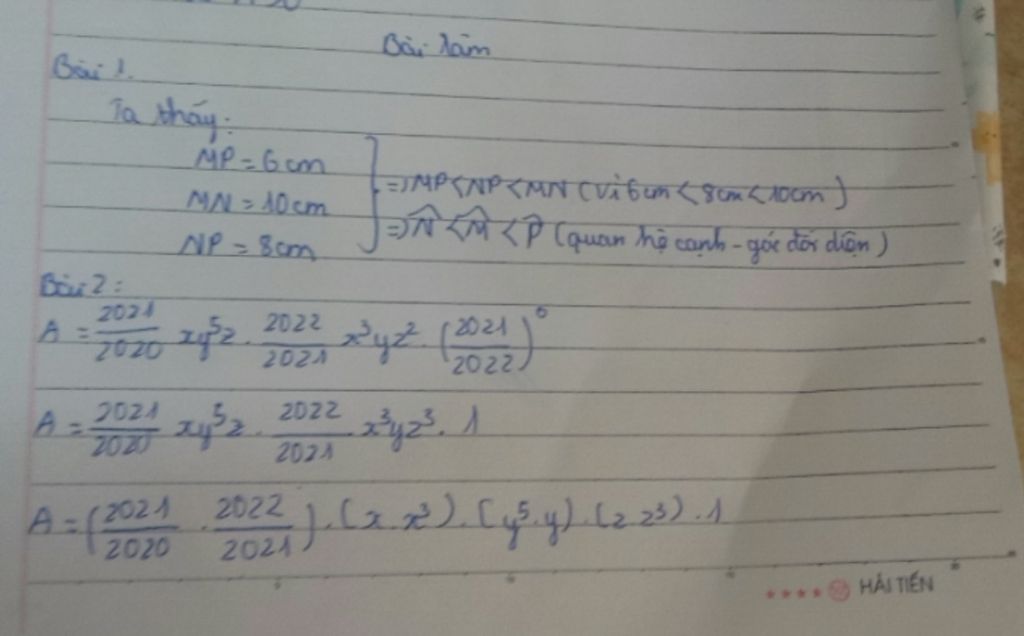 Bài làm
Bài 1.
Ta thấy:
MP = 6cm
MN = 10cm
NP = 8cm
=> MP < NP < MN (vì 6cm < 8cm < 10cm)
=> N̂ < M̂ < P̂ (quan hệ cạnh - góc đối diện)
Bài 2:
A = 2021/2020 xy⁵z . 2022/2021 x³yz² . (2021/2022)⁰
A = 2021/2020 xy⁵z . 2022/2021 x³yz³ . 1
A = (2021/2020 . 2022/2021) . (x . x³) . (y⁵ . y) . (z z³) . 1
HẢI TIẾN